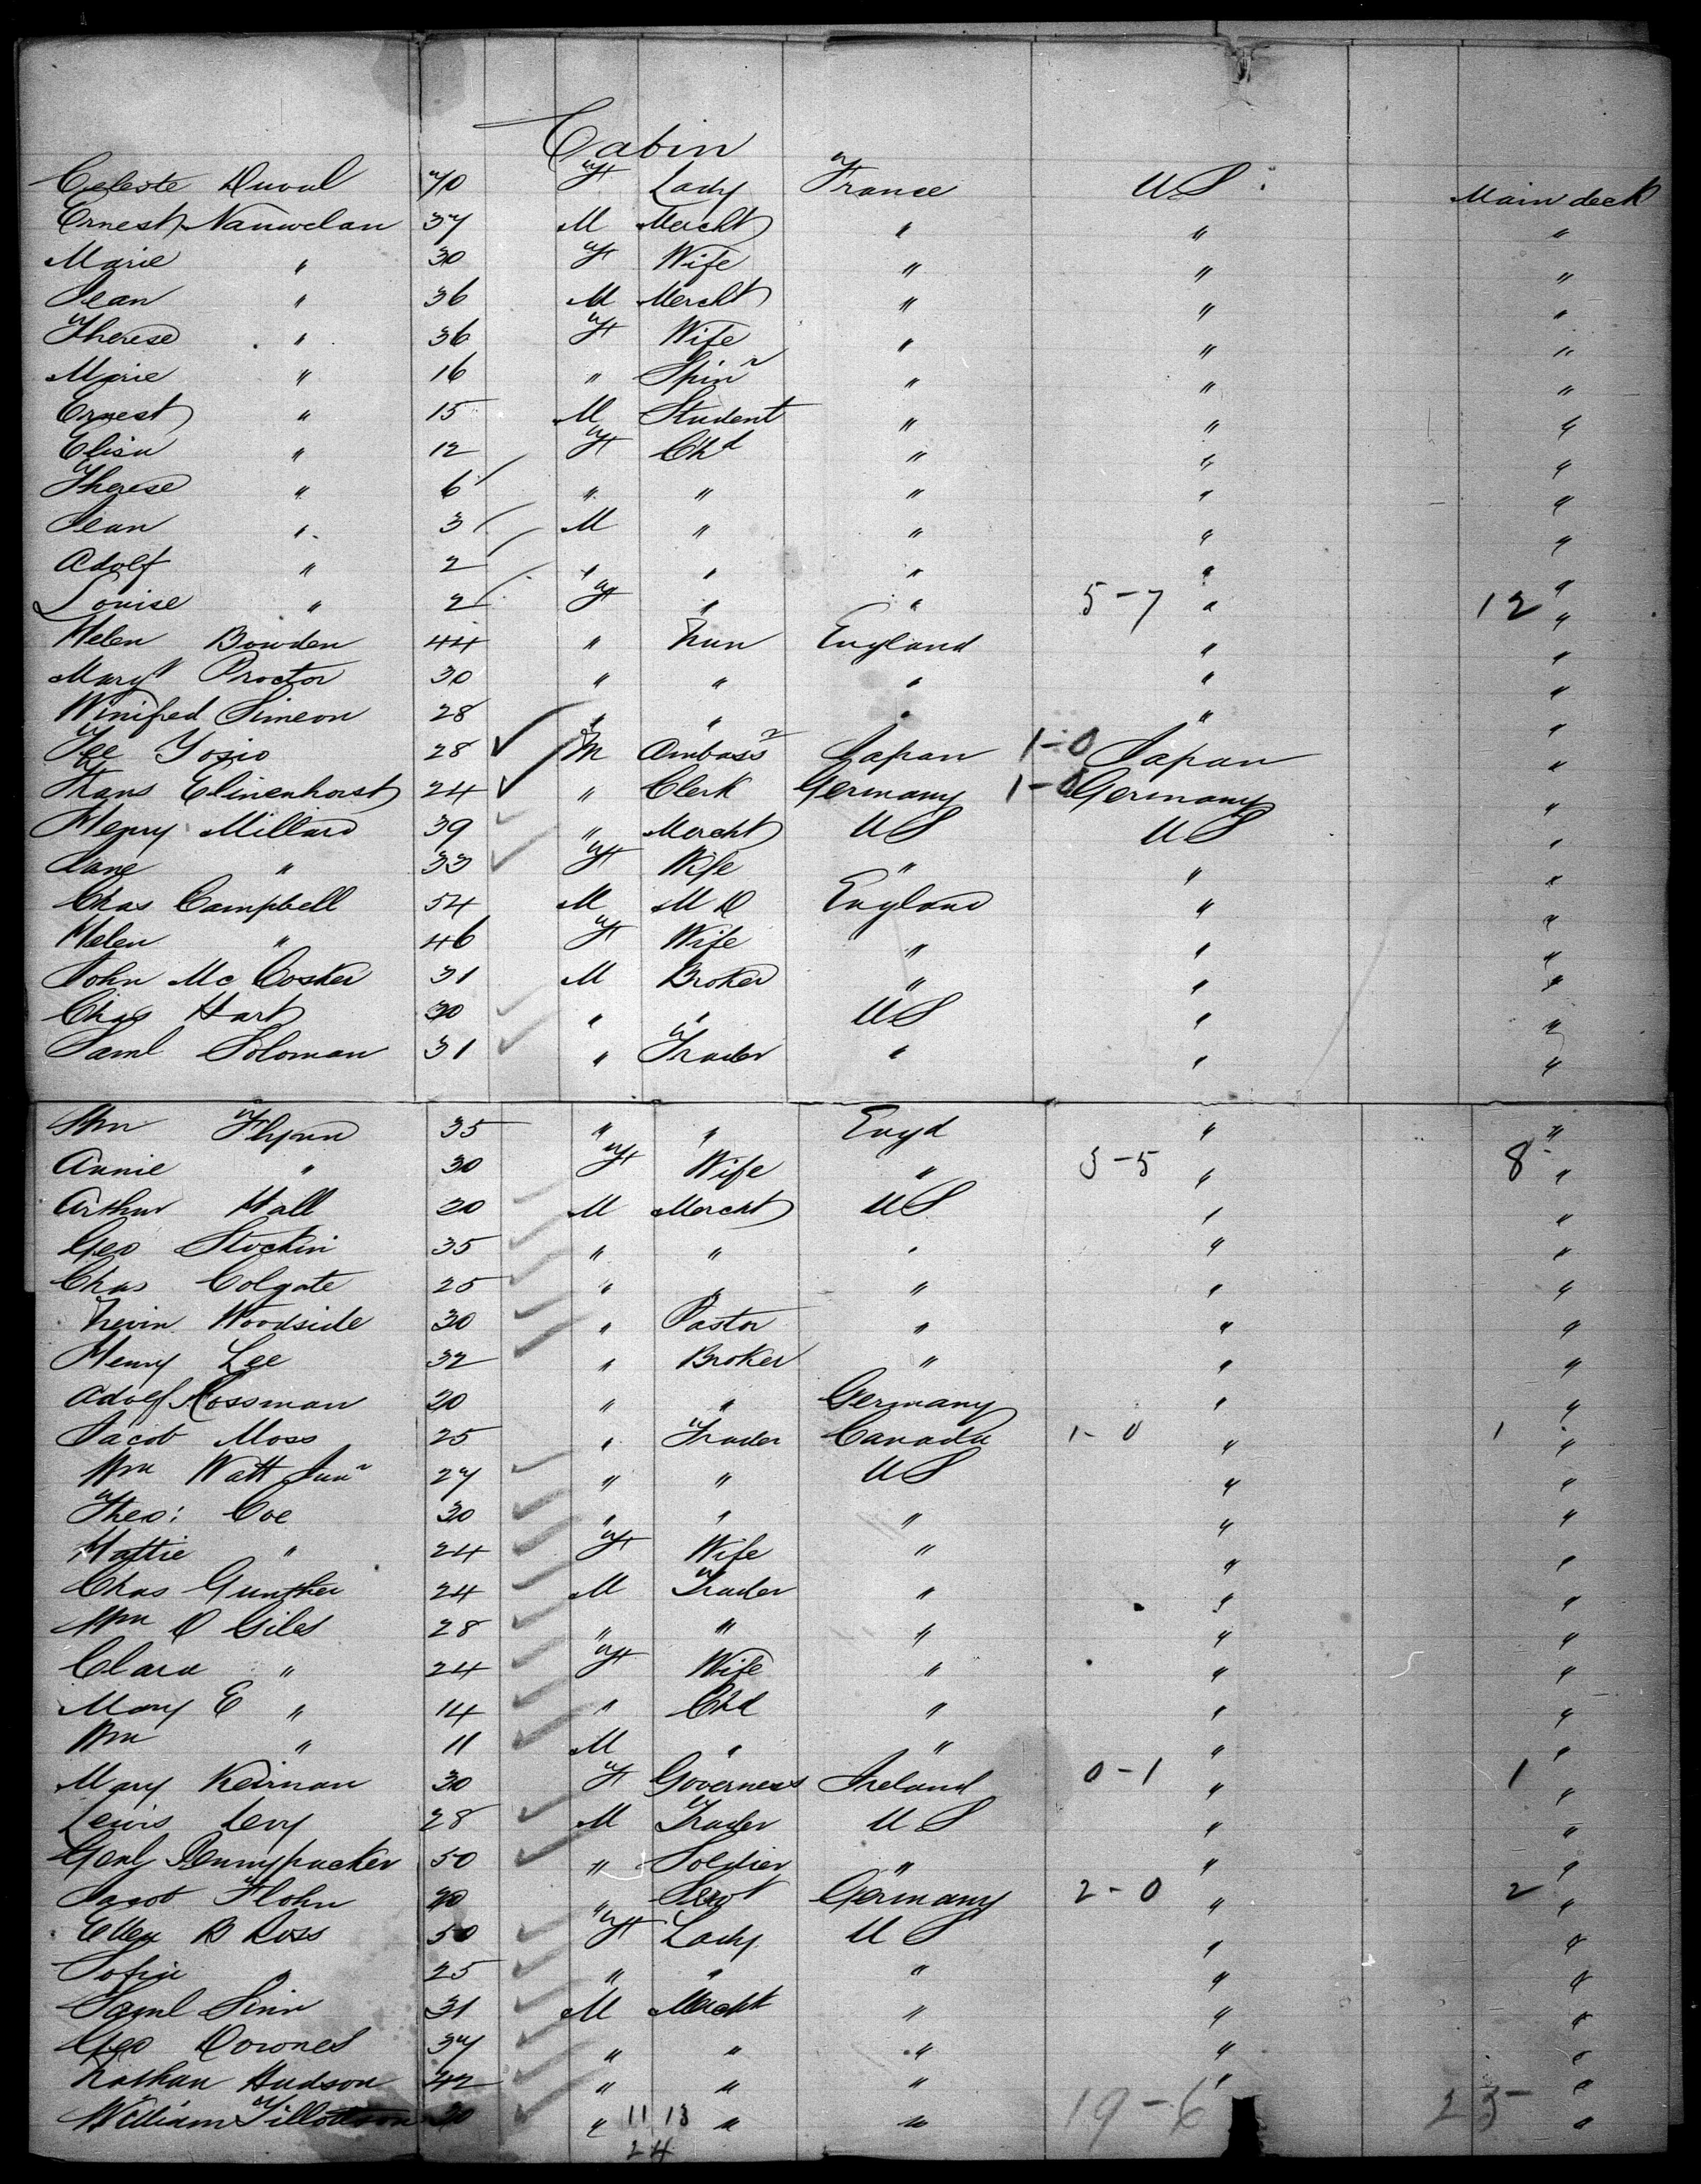 Cabin
Celeste Duval 70 F Lady France US Main deck
Ernest Nauwelan 37 M Mercht " " "
Marie " 30 F Wife " " "
Jean " 36 M Mercht " " "
Therese " 36 F Wife " " "
Marie " 16 " Spinr " " "
Ernest " 15 M Student " " "
Elisa " 12 F Chd " " "
Therese " 6 " " " " "
Jean " 3 M " " " "
Adolf " 2 " " " " "
Louise " 2 F " " 5-7 " 12 "
Helen Bowden 44 " Nun England " "
Margt Proctor 30 " " " " "
Winifred Simeon 28 " " " " "
Tee Yosio 28 M Ambassr Japan 1-0 Japan "
Hans Elinenhorst 24 " Clerk Germany 1-0 Germany "
Henry Millard 39 " Mercht US US "
Jane " 33 F Wife " " "
Chas Campbell 54 M M D England " "
Helen " 46 F Wife " " "
John Mc Cosker 31 M Broker " " "
Chas Hart 30 " " US " "
Saml Soloman 31 " Trader " " "
Wm Flynn 35 " " Engd " "
Annie " 30 F Wife " 3-5 " 8 "
Arthur Hall 20 M Mercht US " "
Geo Stockin 35 " " " " "
Chas Colgate 25 " " " " "
Nevin Woodside 30 " Pastor " " "
Henry Lee 32 " Broker " " "
Adolf Rossman 20 " " Germany " "
Jacob Moss 25 " Trader Canada 1-0 " 1 "
Wm Watt Junr 27 " " US " "
Theo: Coe 30 " " " " "
Hattie " 24 F Wife " " "
Chas Gunther 24 M Trader " " "
Wm D Giles 28 " " " " "
Clara " 24 F Wife " " "
Mary E " 14 " Chd " " "
Wm " 11 M " " " "
Mary Keirnan 30 F Governess Ireland 0-1 " 1 "
Lewis Levy 28 M Trader US " "
Genl Pennypacker 50 " Soldier " " "
Jacob Flohn 20 " Servt Germany 2-0 " 2 "
Ellen B Ross 50 F Lady US " "
Sofie " 25 " " " " "
Saml Sinn 31 M Mercht " " "
Geo Downes 37 " " " " "
Nathan Hudson 42 " " " " "
William Tillotson 30 " 11 13 " " 19-6 23 "
24